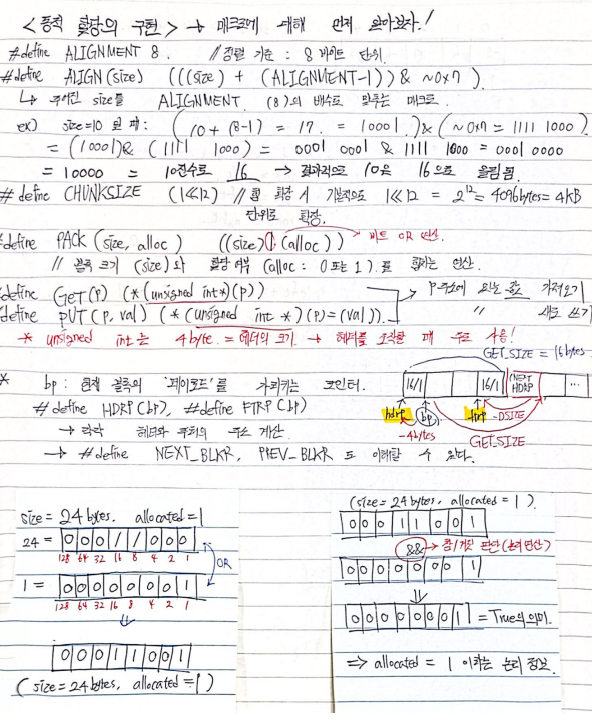 <동적 할당의 구현> → 매크로에 대해 먼저 알아보자!
#define ALIGNMENT 8. //정렬 기준 : 8 바이트 단위.
#define ALIGN(size) (((size) + (ALIGNMENT-1)) & ~0x7)
↳ 주어진 size를 ALIGNMENT (8)의 배수로 맞추는 매크로.
ex) size=10 일 때 : (10 + (8-1) = 17. = 10001.) & (~0x7 = 1111 1000)
= (10001) & (1111 1000) = 0001 0001 & 1111 1000 = 0001 0000
= 10000 = 10진수로 16 → 결과적으로 10은 16으로 올림 됨.
#define CHUNKSIZE (1<<12) //힙 확장 시 기본적으로 1<<12 = 2^12 = 4096bytes = 4kB
단위로 확장.
#define PACK(size, alloc) ((size) | (alloc)) 비트 OR 연산.
// 블록 크기 (size)와 할당 여부 (alloc : 0 또는 1).를 합하는 연산.
#define GET(p) (*(unsigned int*)(p)) P주소에 있는 값 가져오기
#define PUT(p, val) (*(unsigned int *)(p)=(val)). 〃 새로 쓰기
* unsigned int는 4byte. = 헤더의 크기. → 헤더를 조작할 때 주로 사용!
GET_SIZE = 16bytes
* bp : 현재 블록의 '페이로드'를 가리키는 포인터.
16/1 16/1 NEXT HDRP ...
#define HDRP(bp), #define FTRP(bp)
hdrp bp ftrp -DSIZE
→ 각각 헤더와 푸터의 주소 계산
-4bytes GET_SIZE
→ #define NEXT_BLKP, PREV_BLKP 도 이해할 수 있다.
size = 24 bytes. allocated = 1
24 = 0 0 0 1 1 0 0 0
128 64 32 16 8 4 2 1
OR
1 = 0 0 0 0 0 0 0 1
128 64 32 16 8 4 2 1
0 0 0 1 1 0 0 1
(size = 24 bytes, allocated = 1)
(size = 24 bytes, allocated = 1).
0 0 0 1 1 0 0 1
&& → 참/거짓 판단(논리연산)
0 0 0 0 0 0 0 1
0 0 0 0 0 0 0 1 = True의 의미.
=> allocated = 1 이라는 논리 정보.